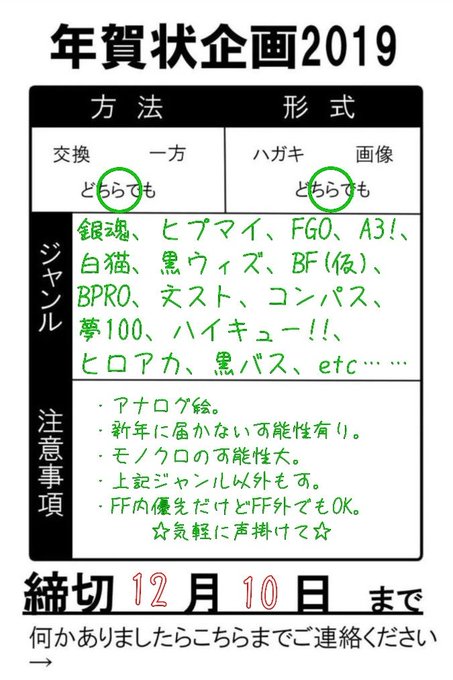 年賀状企画2019
方法 形式
交換 一方 ハガキ 画像
どちらでも どちらでも
ジャンル
銀魂、ヒプマイ、FGO、A3!、
白猫、黒ウィズ、BF(仮)、
BPRO、文スト、コンパス、
夢100、ハイキュー!!、
ヒロアカ、黒バス、etc……
注意事項
・アナログ絵。
・新年に届かない可能性有り。
・モノクロの可能性大。
・上記ジャンル以外もす。
・FF内優先だけどFF外でもOK。
☆気軽に声掛けて☆
締切12月10日 まで
何かありましたらこちらまでご連絡ください
→